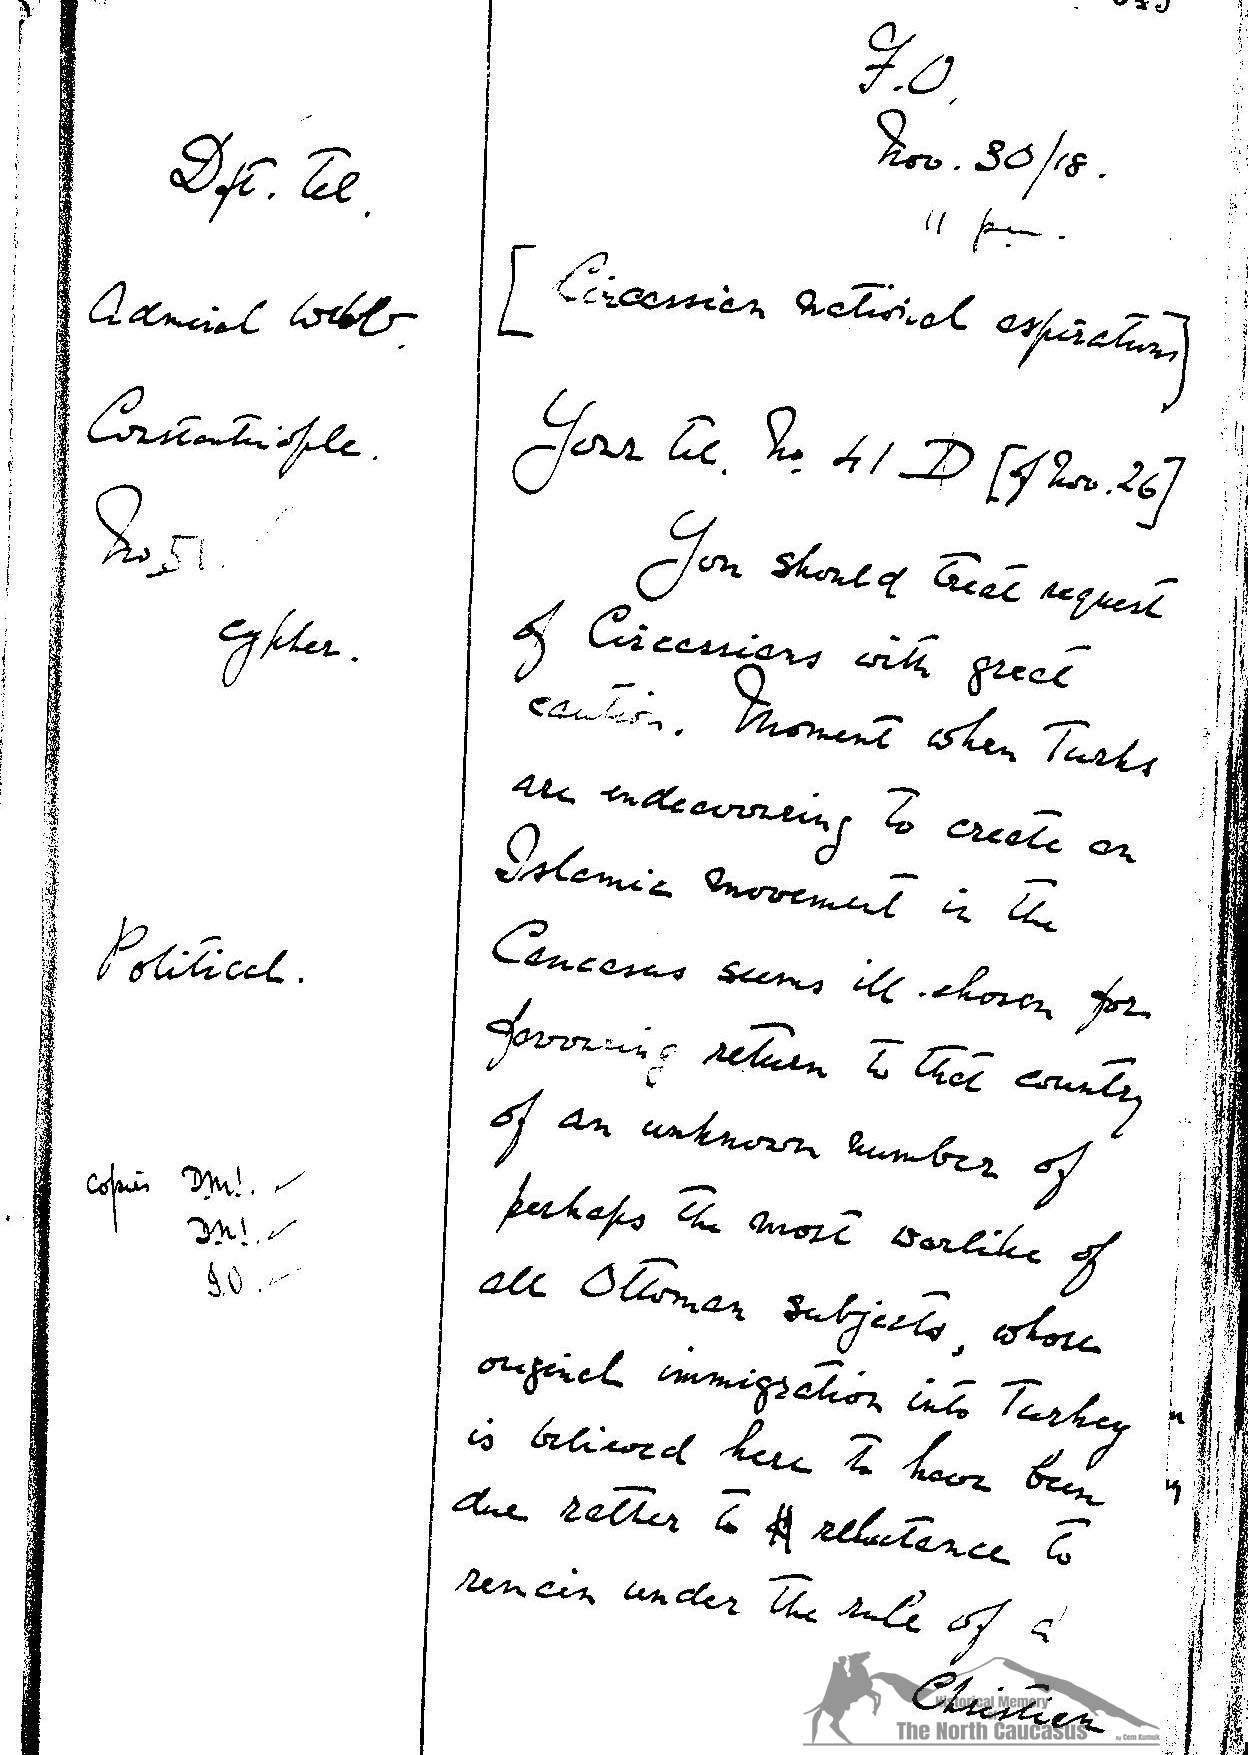 F.O.
Nov. 30/18.
11 pm.
Dft. Tel.
Admiral Webb.
Constantinople.
No. 51.
Cypher.
Political.
Copies DMI.
DNI.
I.O.
[Circassian national aspirations]
Your tel. No. 41 D [of Nov. 26]
You should treat request
of Circassians with great
caution. Moment when Turks
are endeavouring to create an
Islamic movement in the
Caucasus seems ill-chosen for
favouring return to that country
of an unknown number of
perhaps the most warlike of
all Ottoman subjects, whose
original immigration into Turkey
is believed here to have been
due rather to reluctance to
remain under the rule of a
Christian
Historical Memory
The North Caucasus by Cem Kumuk